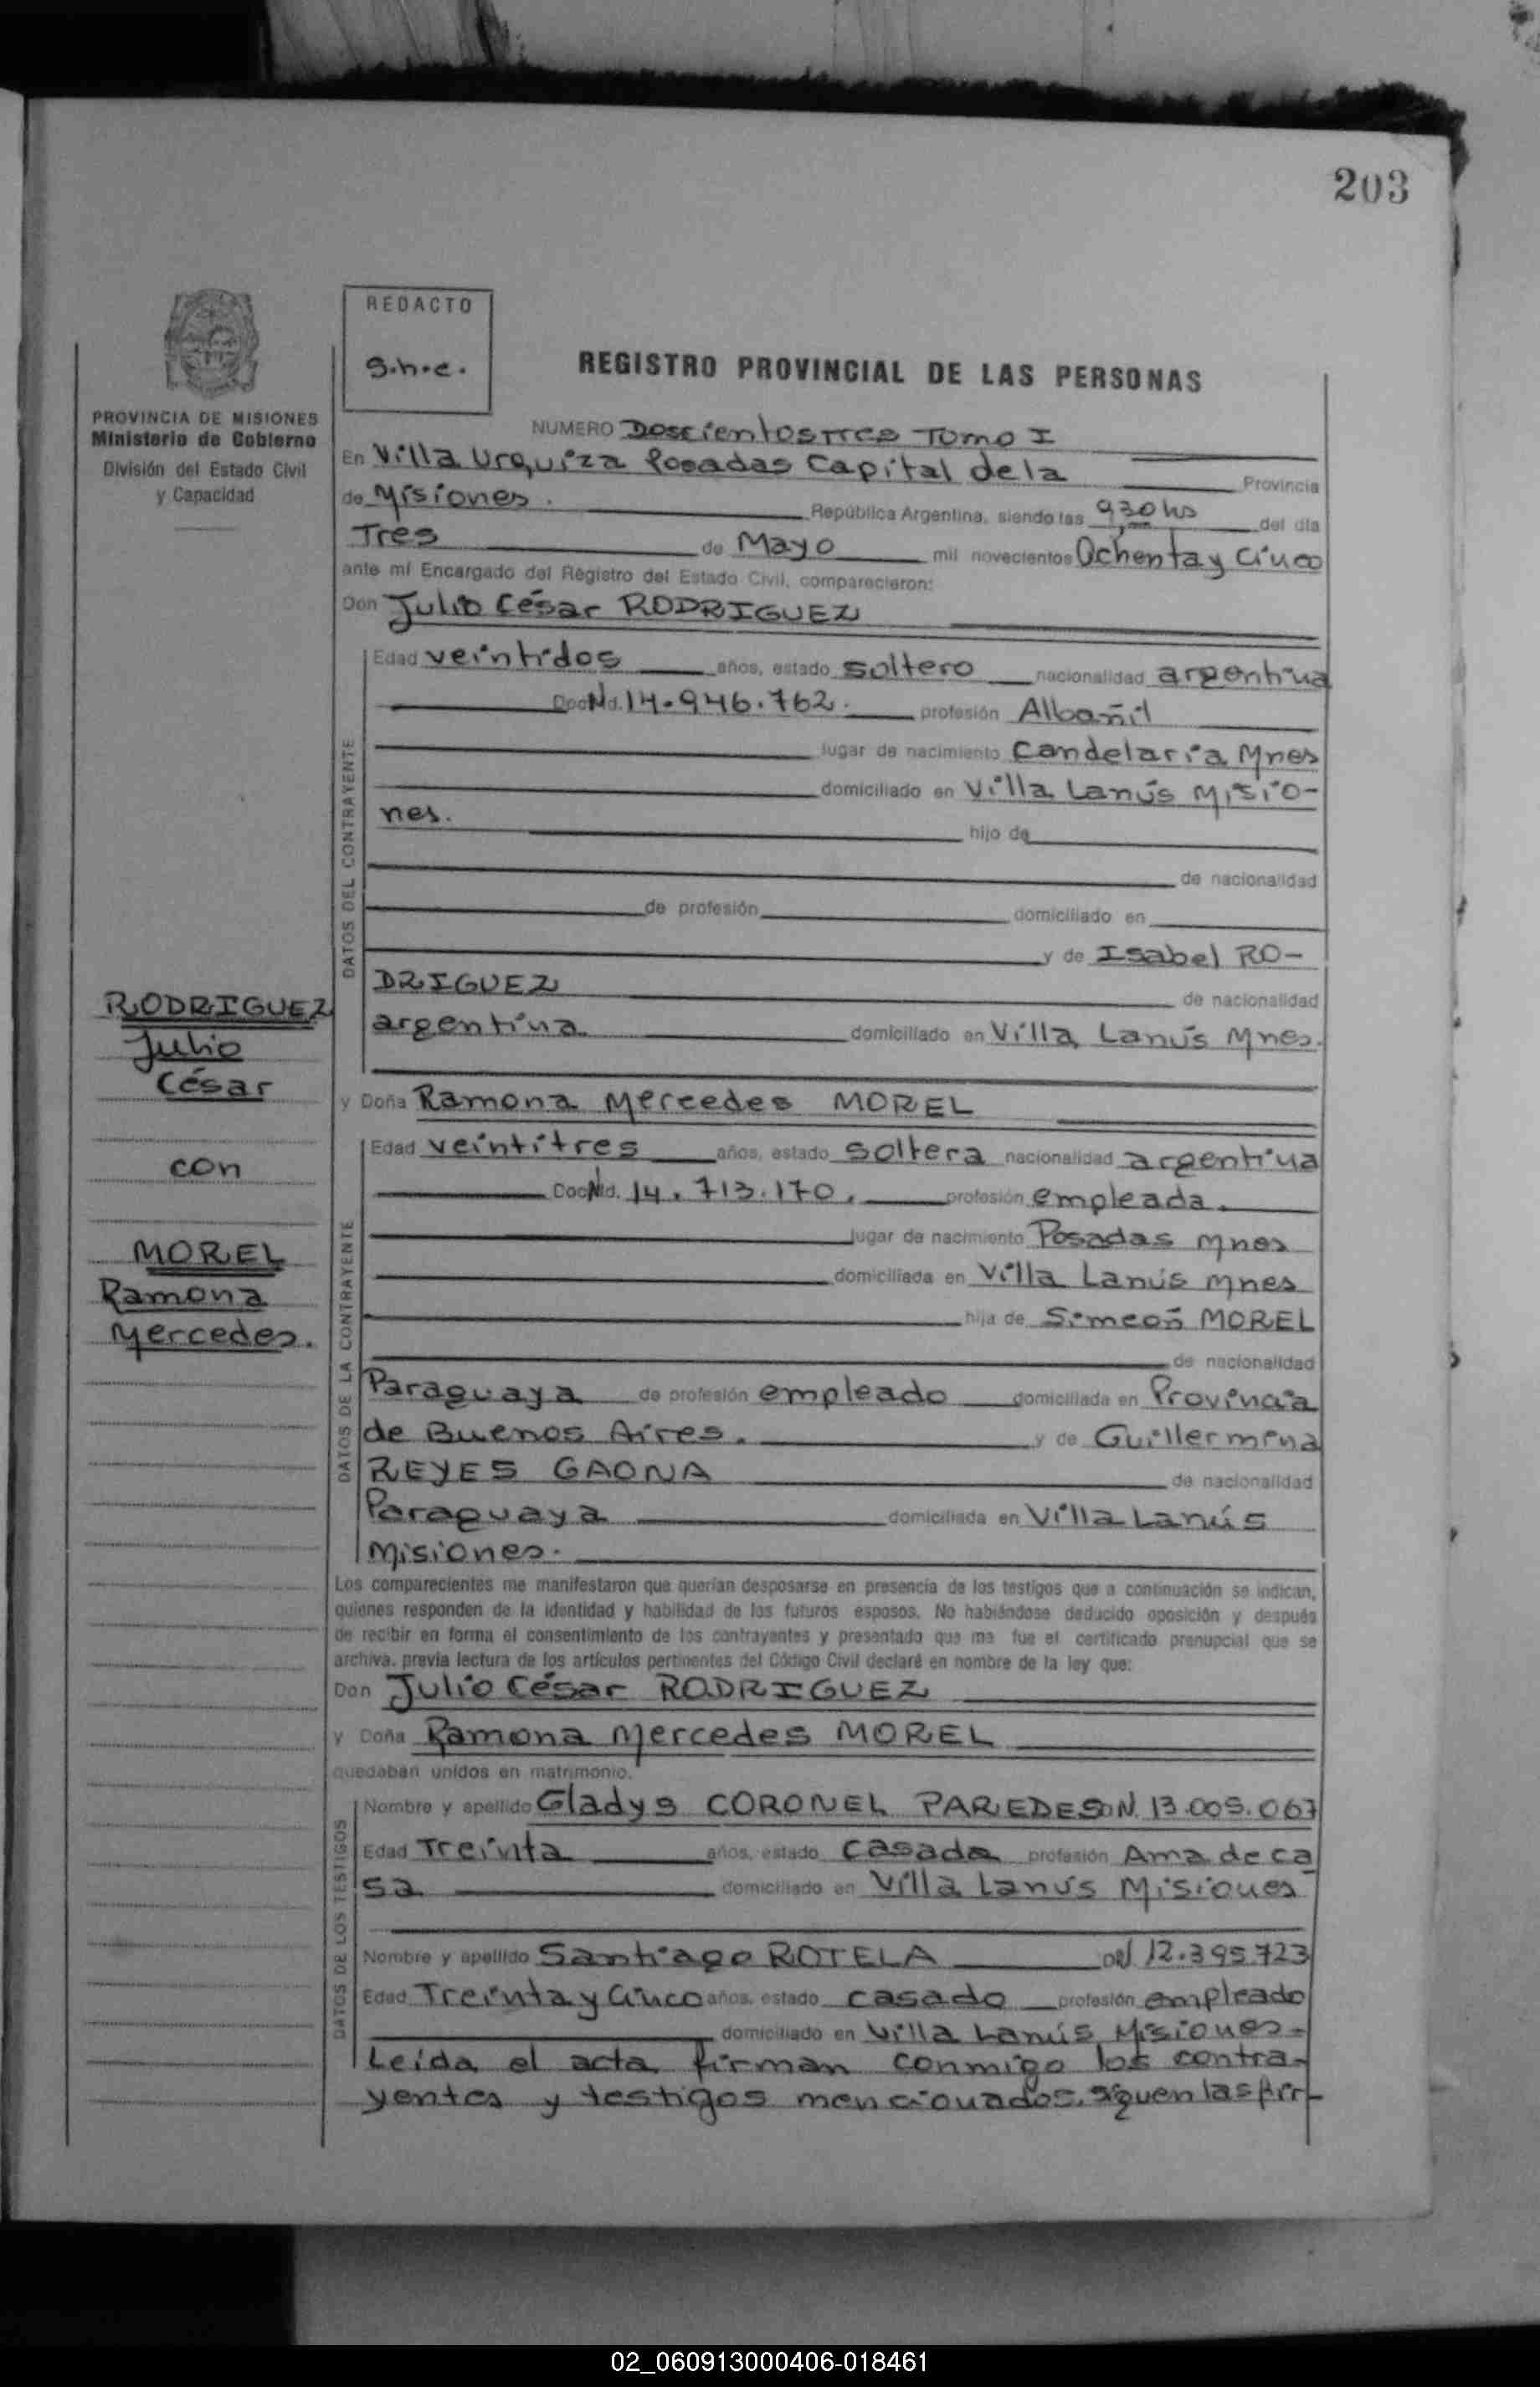 203
REDACTO
g.n.e.
REGISTRO PROVINCIAL DE LAS PERSONAS
PROVINCIA DE MISIONES
Ministerio de Gobierno
División del Estado Civil
y Capacidad
NUMERO Doscientos tres Tomo I
En Villa Urquiza Posadas Capital de la Provincia
de Misiones. República Argentina, siendo las 9,30 hs del día
Tres de Mayo mil novecientos Ochenta y Cinco
ante mí Encargado del Registro del Estado Civil, comparecieron:
Don Julio César RODRIGUEZ
DATOS DEL CONTRAYENTE
Edad veintidos años, estado soltero nacionalidad argentina
Doc Nd. 14.946.762. profesión Albañil
lugar de nacimiento Candelaria Mnes
domiciliado en Villa Lanús Misio-
nes. hijo de
de nacionalidad
de profesión domiciliado en
y de Isabel RO-
DRIGUEZ de nacionalidad
argentina domiciliado en Villa Lanús Mnes.
RODRIGUEZ
Julio
César
con
MOREL
Ramona
Mercedes.
y Doña Ramona Mercedes MOREL
DATOS DE LA CONTRAYENTE
Edad veintitres años, estado soltera nacionalidad argentina
Doc Nd. 14.713.170. profesión empleada.
lugar de nacimiento Posadas Mnes
domiciliada en Villa Lanús Mnes
hija de Simeón MOREL
de nacionalidad
Paraguaya de profesión empleado domiciliada en Provincia
de Buenos Aires. y de Guillermina
REYES GAONA de nacionalidad
Paraguaya domiciliada en Villa Lanús
Misiones.
Los comparecientes me manifestaron que querían desposarse en presencia de los testigos que a continuación se indican,
quienes responden de la identidad y habilidad de los futuros esposos. No habiéndose deducido oposición y después
de recibir en forma el consentimiento de los contrayentes y presentado que me fue el certificado prenupcial que se
archiva, previa lectura de los artículos pertinentes del Código Civil declaré en nombre de la ley que:
Don Julio César RODRIGUEZ
y Doña Ramona Mercedes MOREL
quedaban unidos en matrimonio.
DATOS DE LOS TESTIGOS
Nombre y apellido Gladys CORONEL PAREDES DN. 13.005.067
Edad Treinta años, estado casada profesión Ama de ca
sa domiciliado en Villa Lanús Misiones
Nombre y apellido Santiago ROTELA 12.395.723
Edad Treinta y Cinco años, estado casado profesión empleado
domiciliado en Villa Lanús Misiones-
Leida el acta firman conmigo los contra-
yentes y testigos mencionados. siguen las fir-
02_060913000406-018461